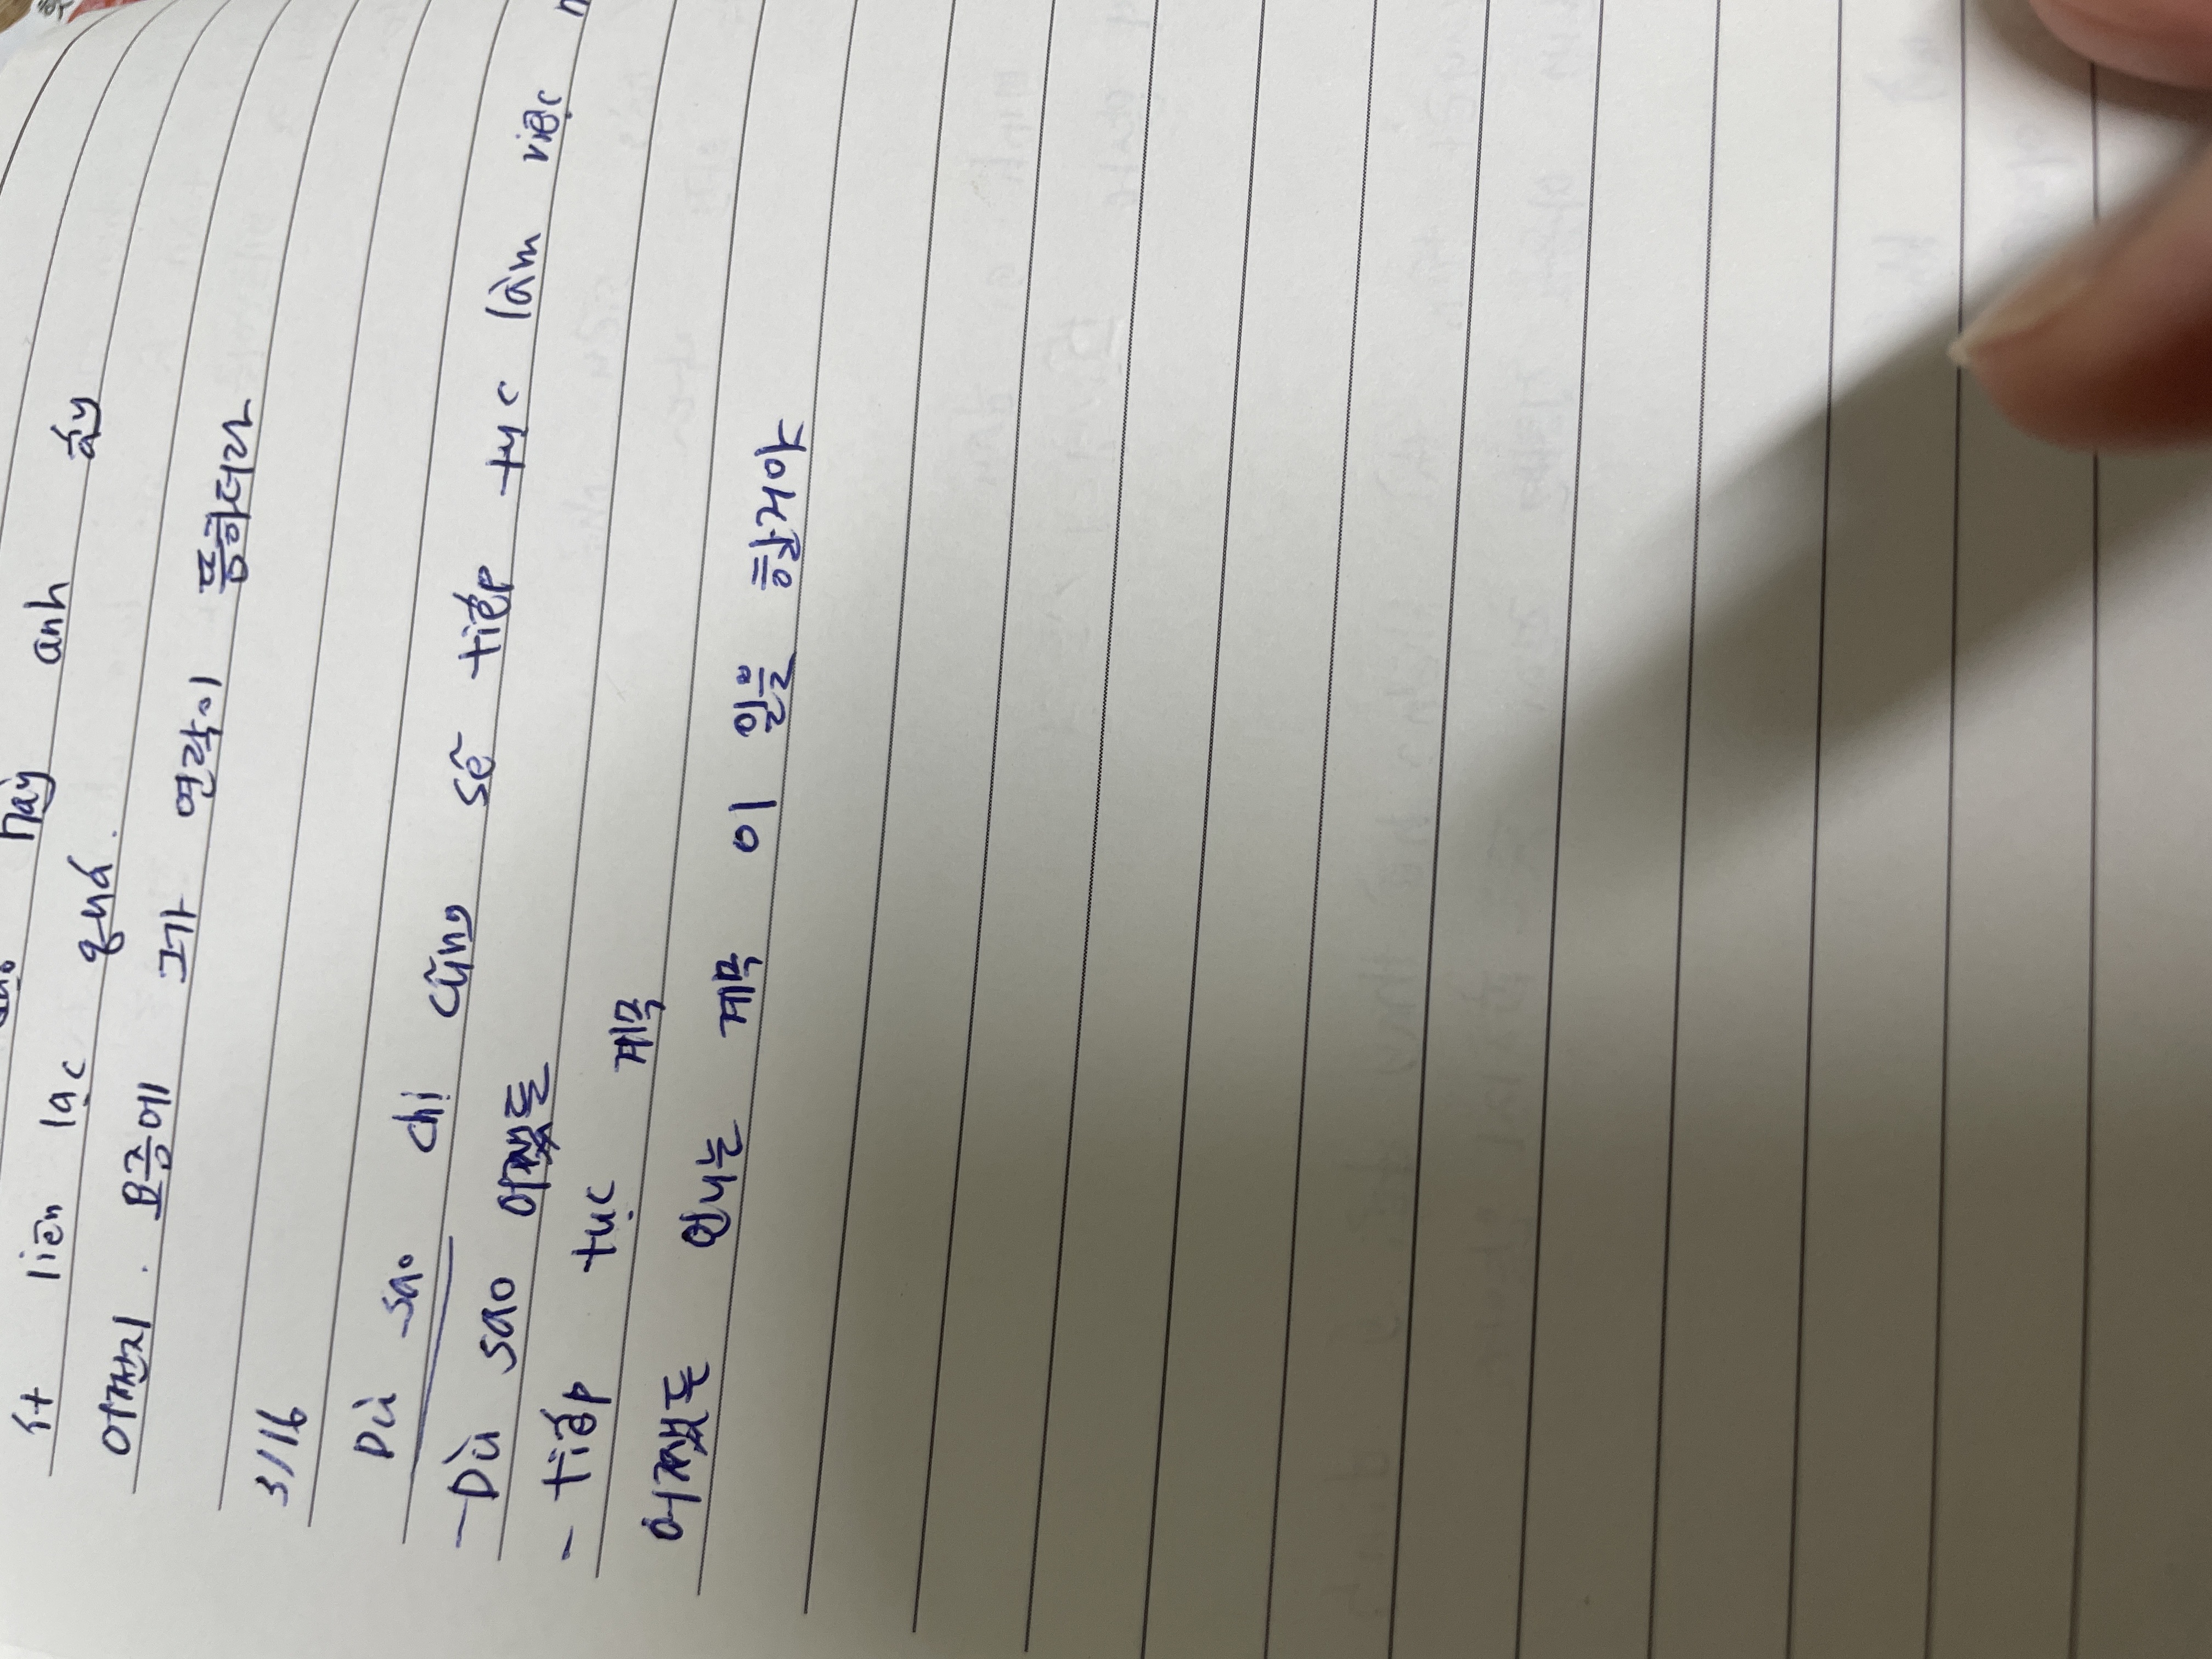 này anh ấy
ít liên lạc quá.
어쩐지. 요즘에 그가 연락이 뜸하더라
3/16
Dù sao chị cũng sẽ tiếp tục làm việc
- Dù sao 어쨌든
- tiếp tục 계속
어쨌든 언니는 계속 이 일을 할거야